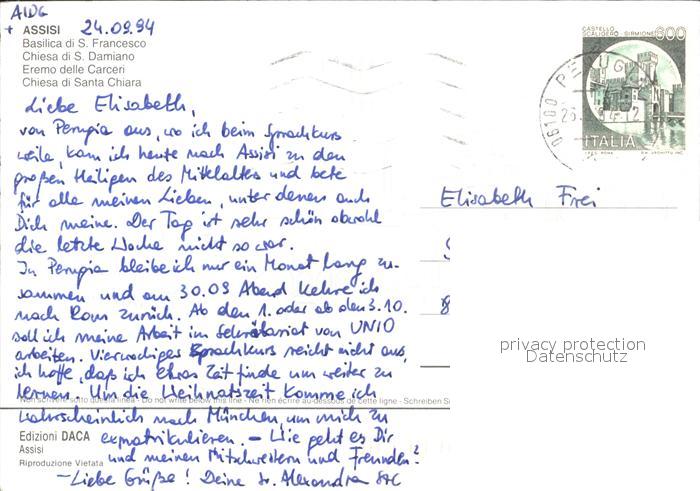 AIDG
+ ASSISI 24.09.94
Basilica di S. Francesco
Chiesa di S. Damiano
Eremo delle Carceri
Chiesa di Santa Chiara
CASTELLO
SCALIGERO - SIRMIONE 600
06100 PERUGIA
ITALIA
Liebe Elisabeth,
von Perugia aus, wo ich beim Sprachkurs
weile, kam ich heute nach Assisi zu den
großen Heiligen des Mittelalters und bete
für alle meinen Lieben, unter denen auch
Dich meine. Der Tag ist sehr schön obwohl
die letzte Woche nicht so war.
In Perugia bleibe ich nur ein Monat lang zu-
sammen und am 30.09 Abend kehre ich
nach Rom zurück. Ab den 1. oder ab den 3.10.
soll ich meine Arbeit im Sekretariat von UNIO
arbeiten. Vierwochiges Sprachkurs reicht nicht aus,
ich hoffe, daß ich Etwas Zeit finde um weiter zu
lernen. Um die Weihnatszeit komme ich
Non scrivere sotto questa linea - Do not write below this line - Ne rien écrire au-dessous de cette ligne - Schreiben Si
wahrscheinlich nach München, um mich zu
Edizioni DACA exmatrikulieren. - Wie geht es Dir
Assisi
und meinen Mitschwestern und Freunden?
Riproduzione Vietata
- Liebe Grüße! Deine Sr. Alexandra
Elisabeth Frei
privacy protection
Datenschutz